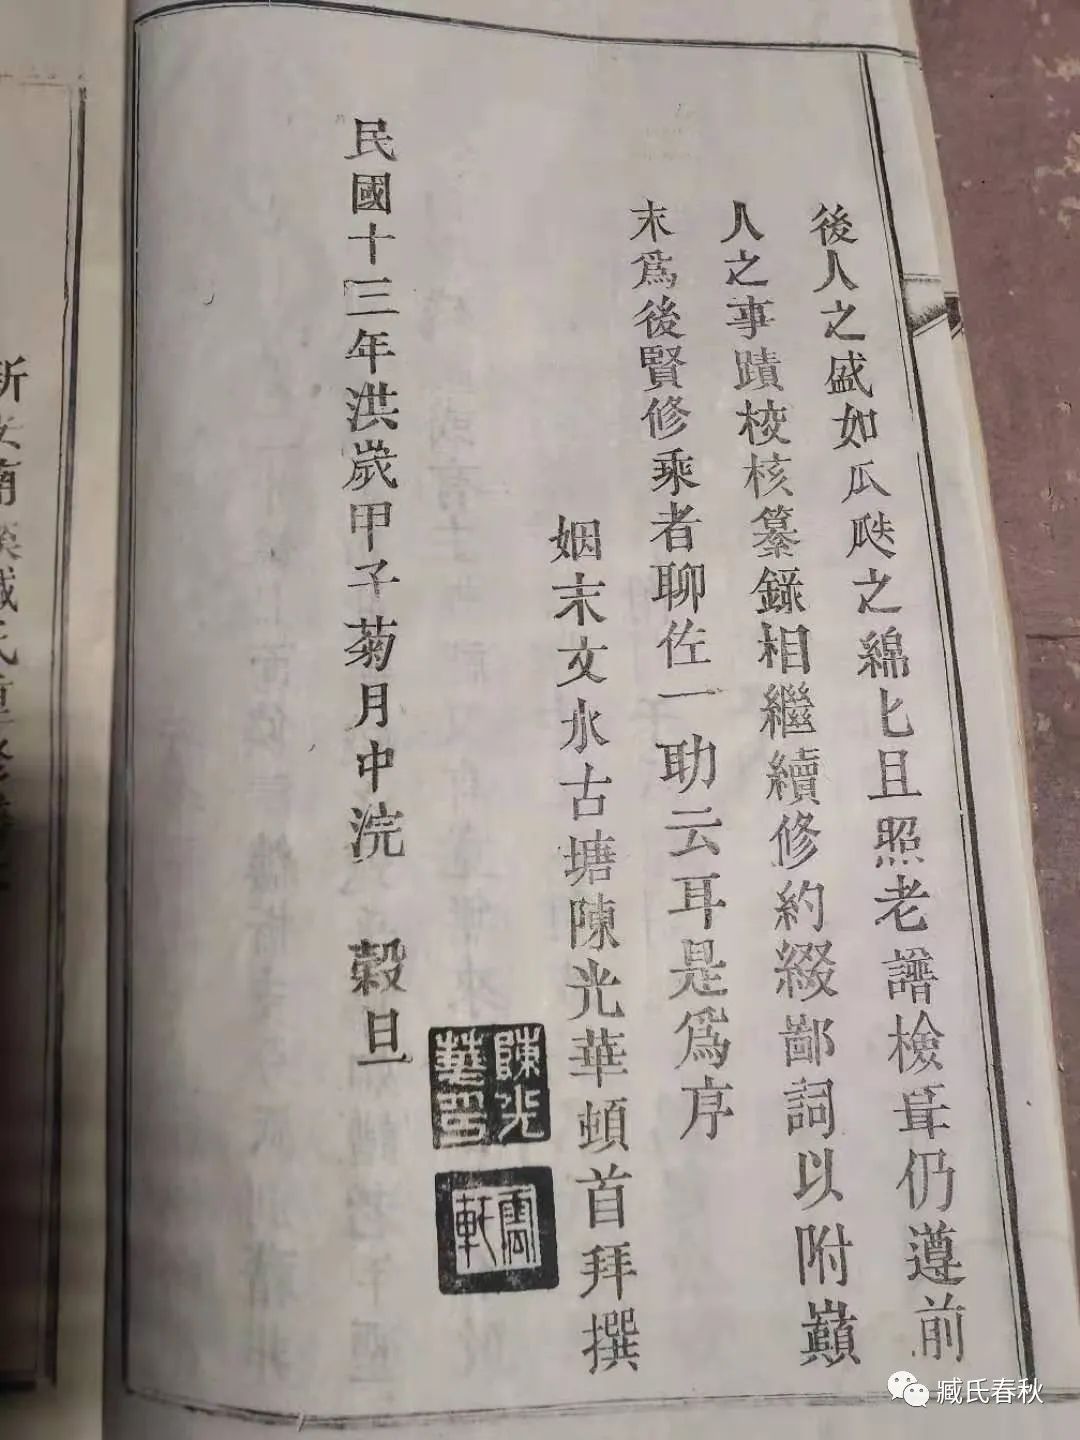 後人之盛如瓜瓞之綿匕且照老譜檢查仍遵前
人之事蹟校核纂錄相繼續修約綴鄙詞以附巔
末爲後賢修乘者聊佐一助云耳是爲序
姻末文水古塘陳光華頓首拜撰
陳光華印
雲軒
民國十三年洪歲甲子菊月中浣 穀旦
臧氏春秋